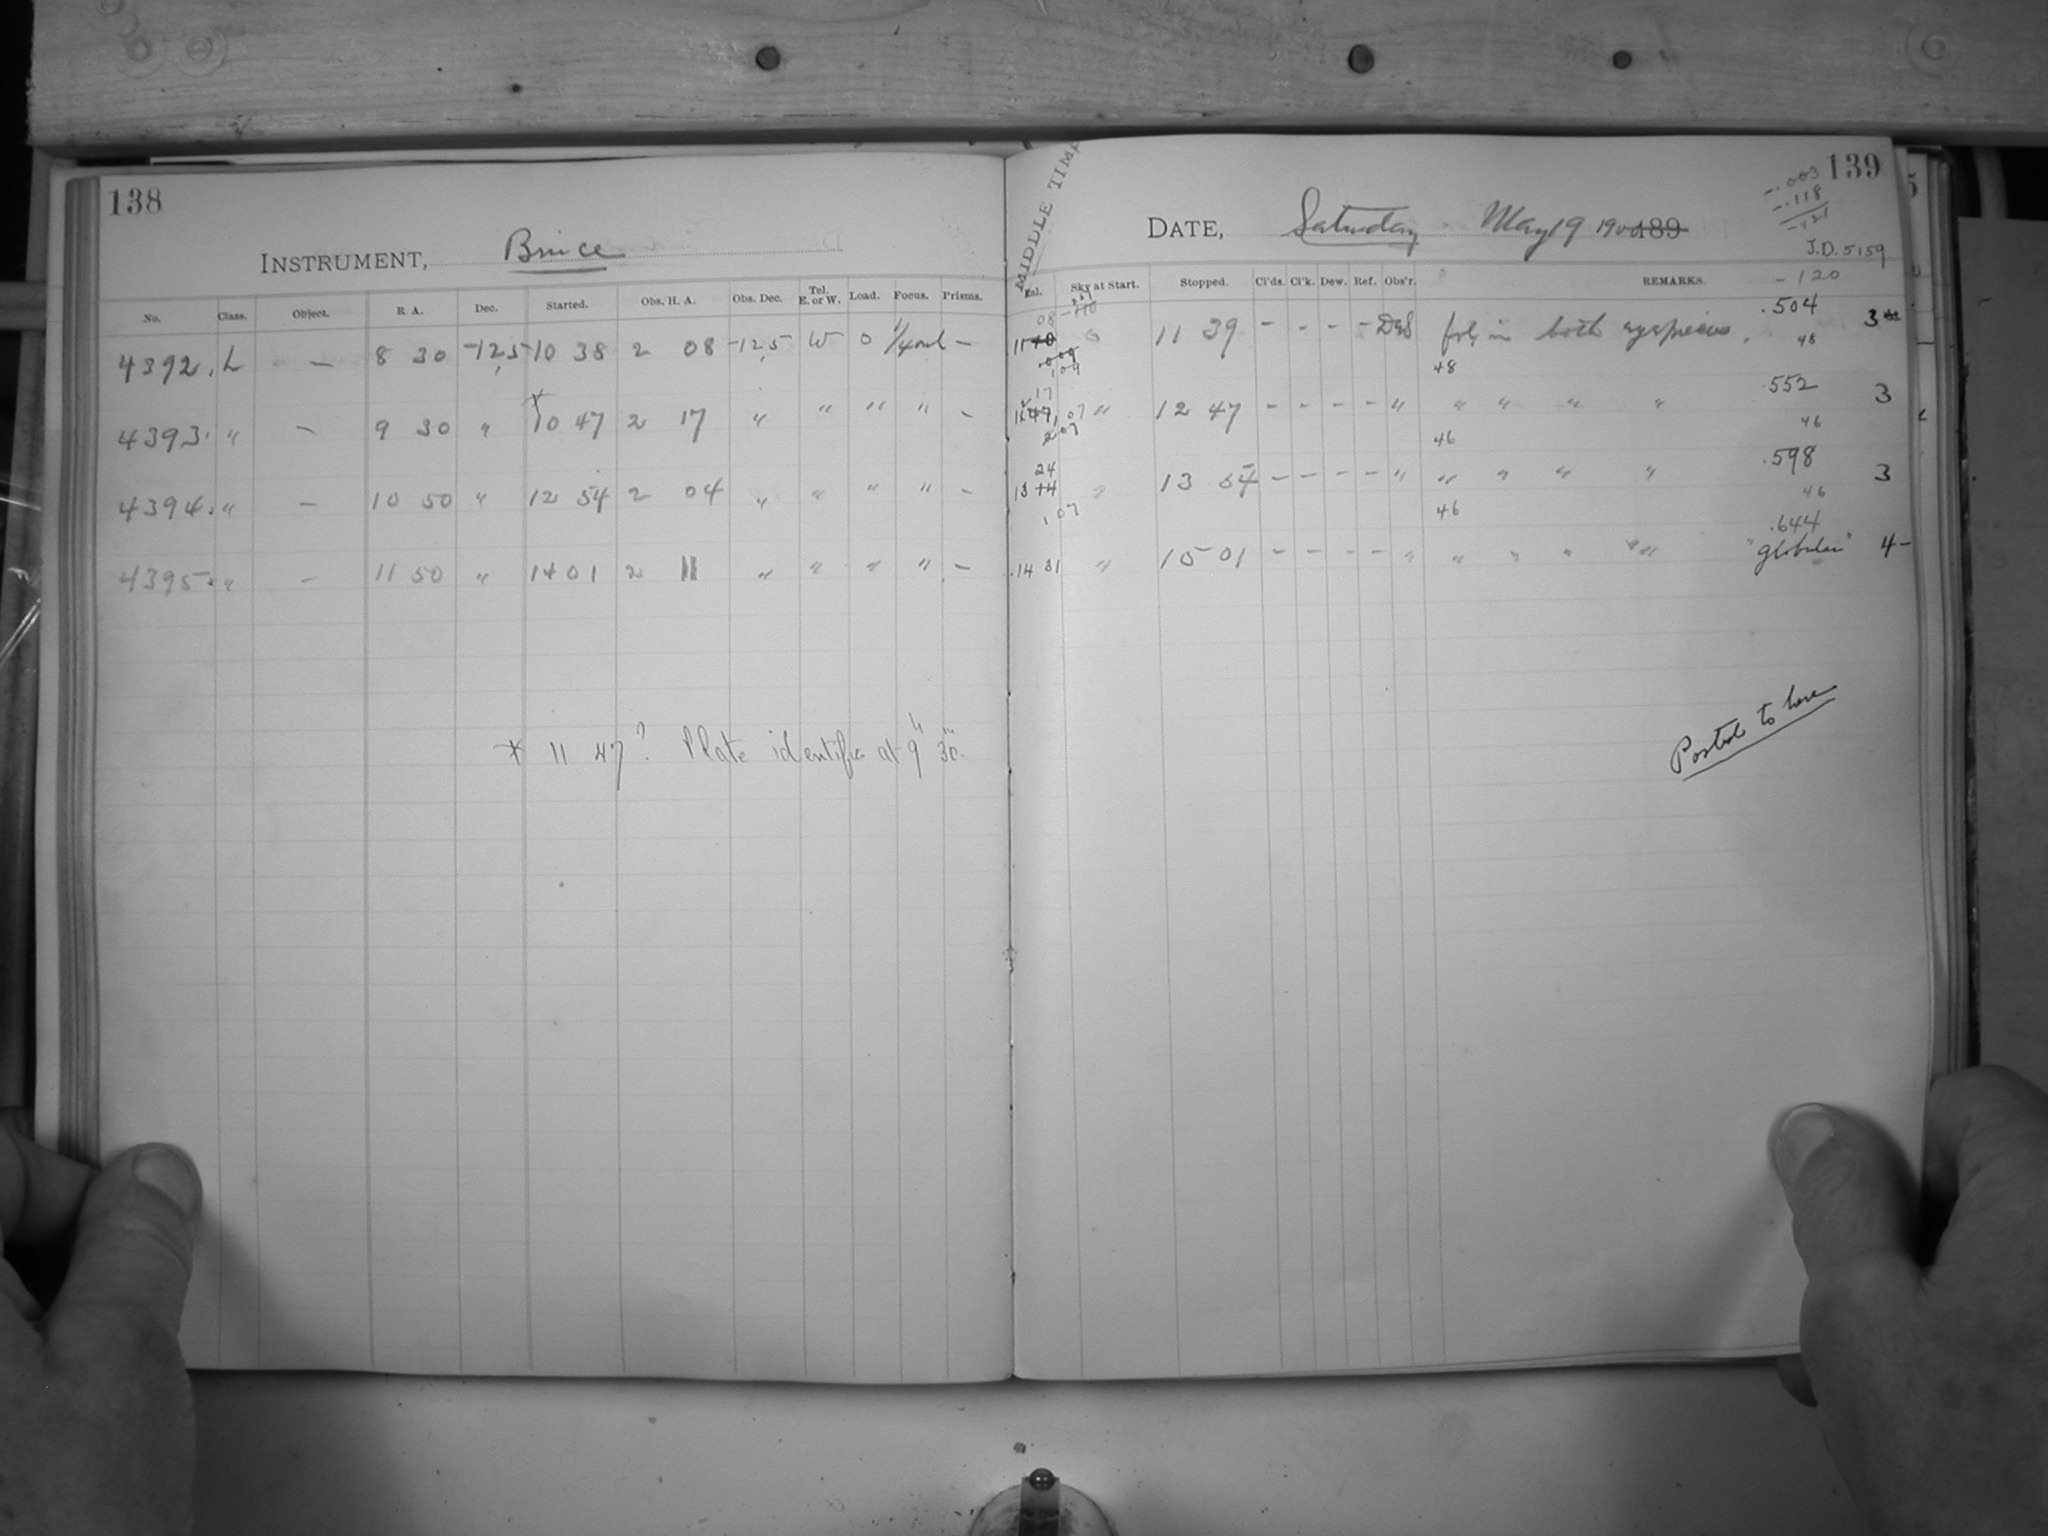 138
INSTRUMENT, Bruce
No. Class. Object. R A. Dec. Started. Obs. H. A. Obs. Dec. Tel. E. or W. Load. Focus. Prisms.
4392. L — 8 30 -12,5 10 38 2 08 -12,5 W 0 —
4393. " — 9 30 " * 10 47 2 17 " " " " —
4394. " — 10 50 " 12 54 2 04 " " " " —
4395. " — 11 50 " 14 01 2 11 " " " " —
* 11 47? Plate identifies at 9h 30m.
MIDDLE TIME
139
-.003
-.118
-.121
DATE, Saturday May 19 1900 189
J.D. 5159
Exl. Sky at Start. Stopped. Cl'ds. Cl'k. Dew. Ref. Obs'r. REMARKS. -120
08 .504
11 11 39 - - - - in both eyepieces. 3
48 48
17 .552
" 12 47 - - - - " " " " " 3
2 07 46 46
24 .598
13 14 " 13 54 - - - - " " " " " 3
1 07 46 46
.644
14 31 " 15 01 - - - - " " " " " "globular" 4-
Posted to here